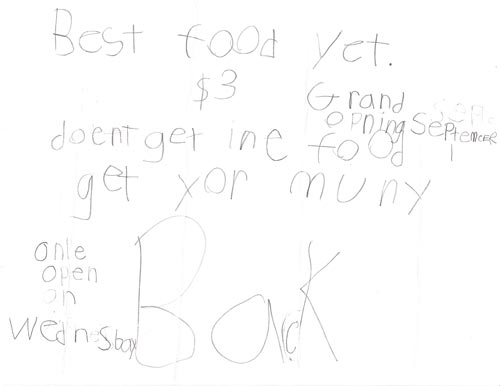 Best food yet.
$3
Grand
opning September
1
doent get ine food
get yor muny
Back
onle
open
on
Wednesbay